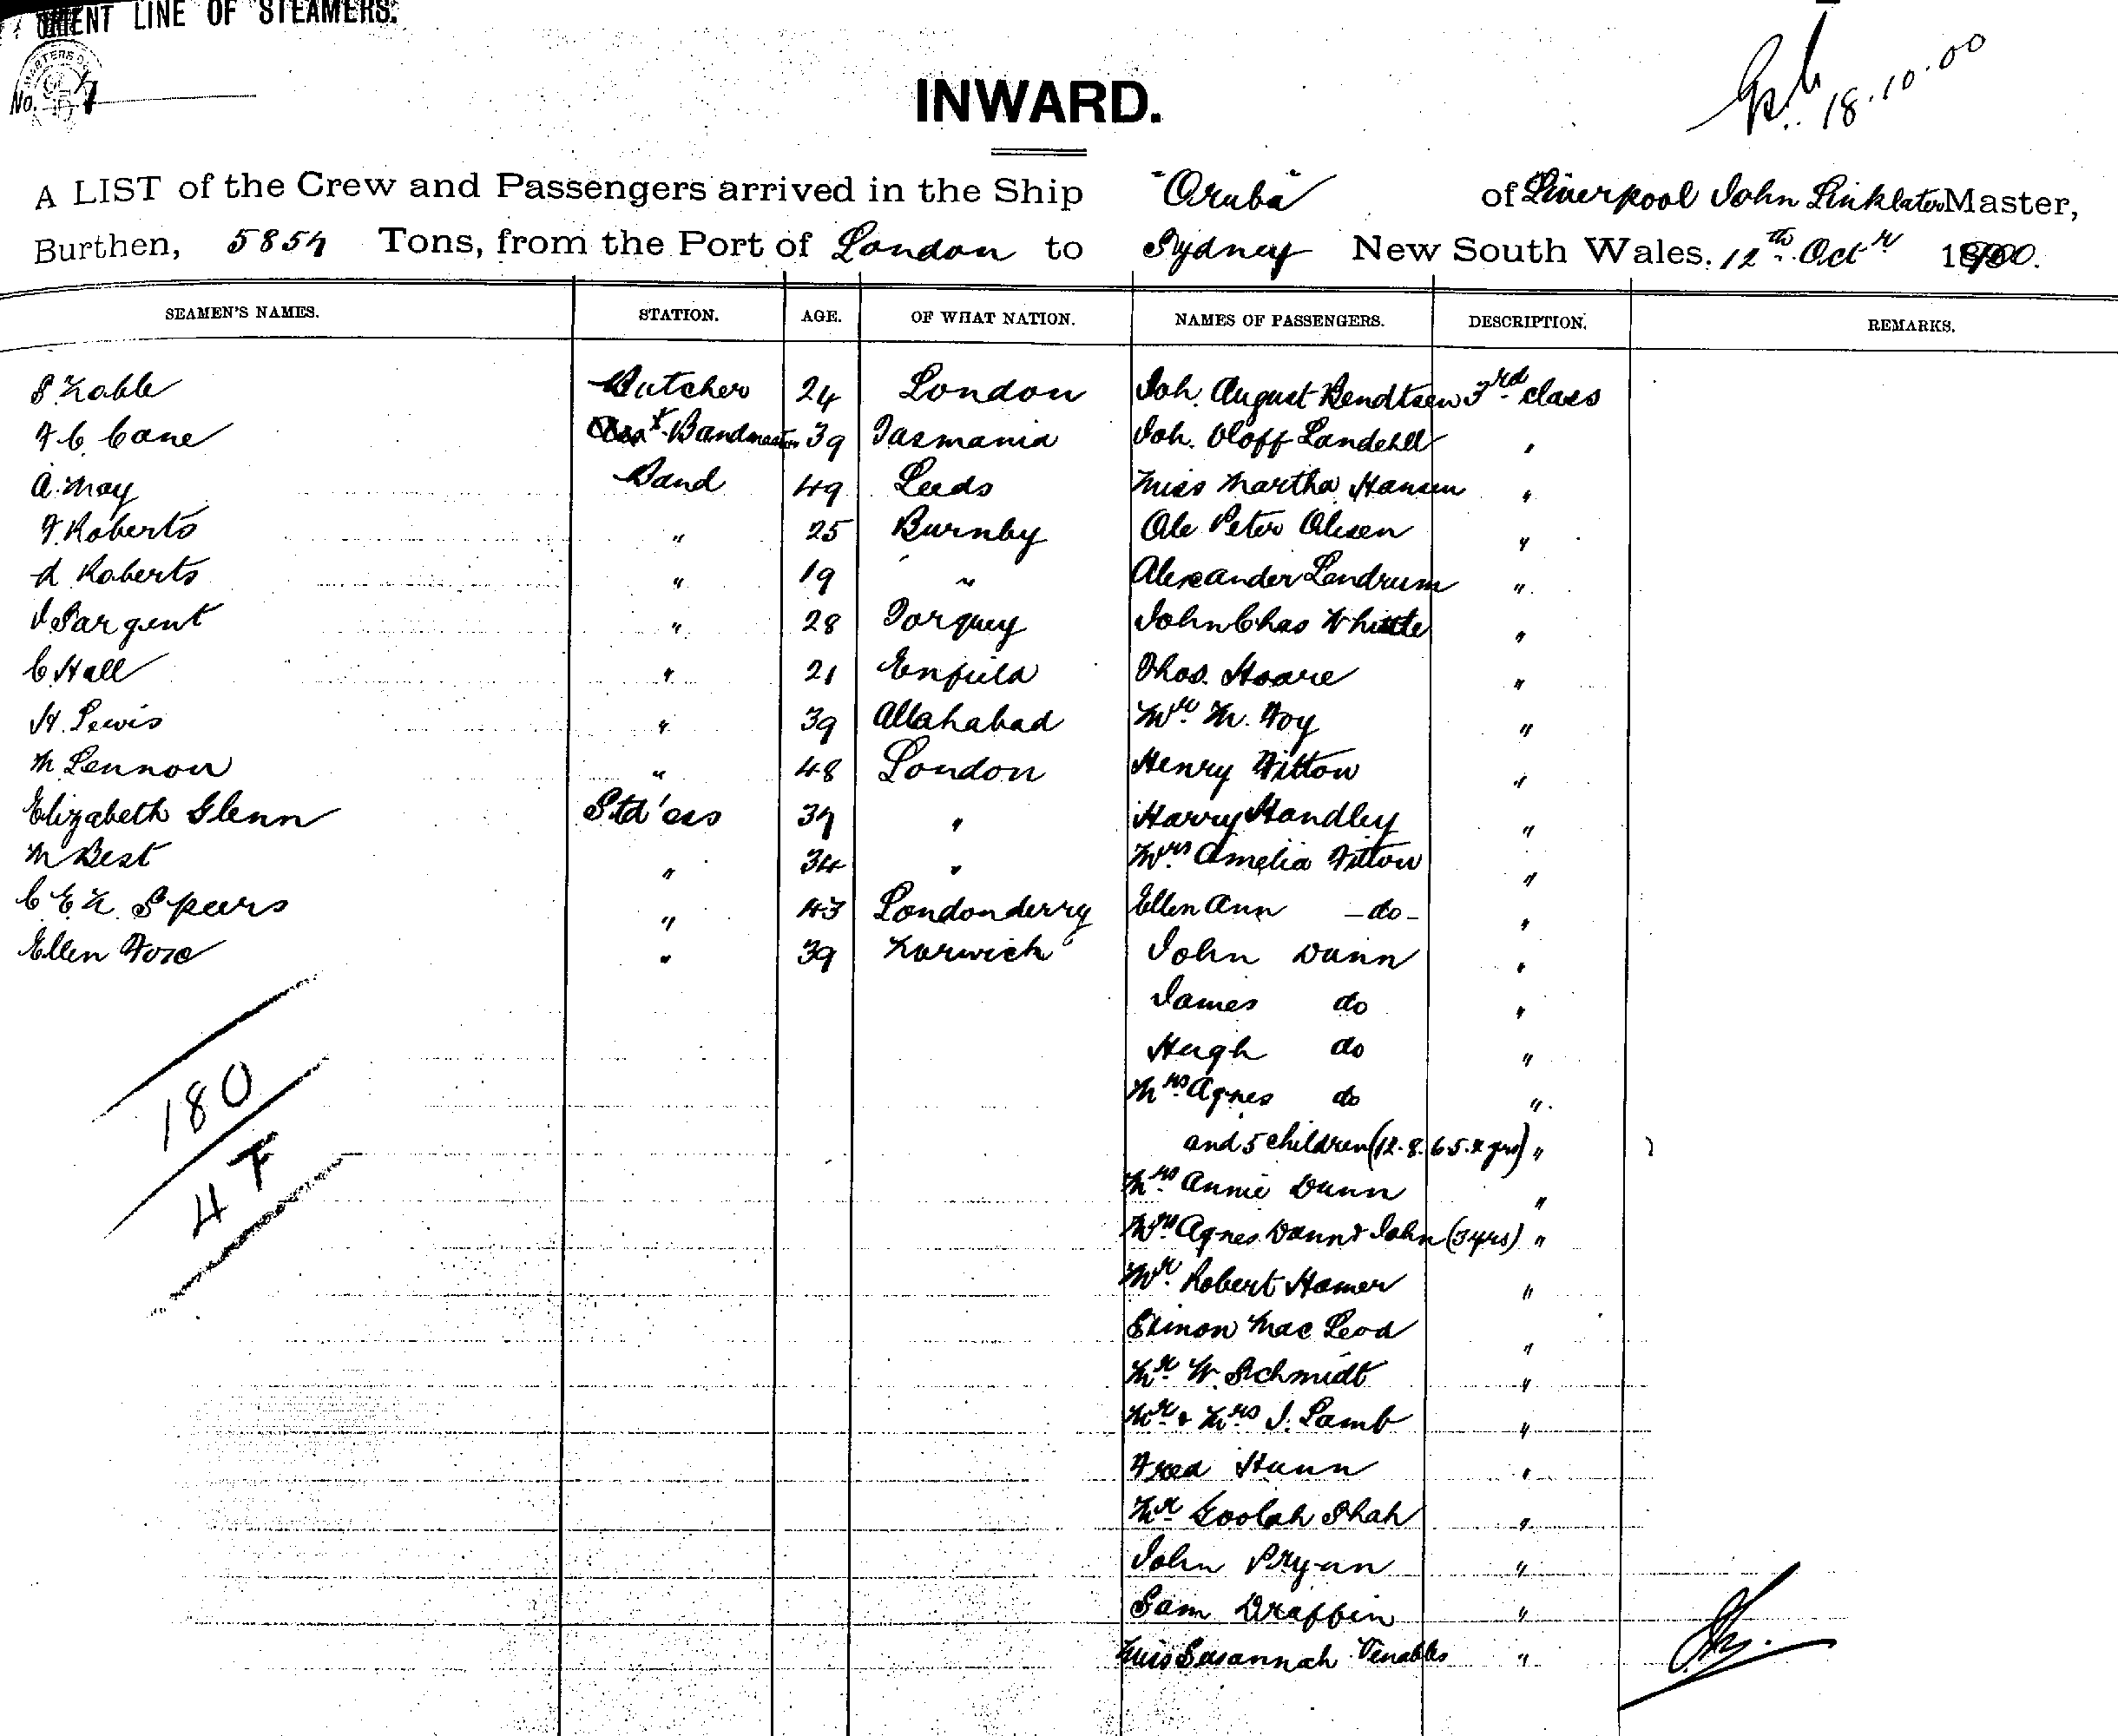 ORIENT LINE OF STEAMERS.
No.
18.10.00
INWARD.
A LIST of the Crew and Passengers arrived in the Ship "Oruba" of Liverpool John Linklater Master,
Burthen, 5857 Tons, from the Port of London to Sydney New South Wales. 12th Octr 1900.
SEAMEN'S NAMES. STATION. AGE. OF WHAT NATION. NAMES OF PASSENGERS. DESCRIPTION. REMARKS.
S. Noble Butcher 24 London Joh. August Bendtsen 3rd class
F C Cane Bandmaster 39 Tasmania Joh. Oloff Landehll "
A. May Band 49 Leeds Miss Martha Hansen "
F. Roberts " 25 Burnby Ole Peter Olesen "
A Roberts " 19 " Alexander Lendrum "
J Sargent " 28 Torquey John Chas Whittle "
C Hall " 21 Enfield Thos. Hoare "
H. Lewis " 39 Allahabad Mr. M. Foy "
M Lennon " 48 London Henry Fitton "
Elizabeth Glenn Std'ess 37 " Harry Handley "
M Best " 34 " Mrs Amelia Fitton "
C E N. Speers " 43 Londonderry Ellen Ann -do- "
Ellen Foxe " 39 Norwich John Dunn "
James do "
Hugh do "
180 Mrs Agnes do "
4 F and 5 children (12. 8. 6 5. 2 yrs) "
Mrs Annie Dunn "
Mrs Agnes Dunn & John (3 yrs) "
Mr. Robert Hamer "
Simon Mac Leod "
Mr W. Schmidt "
Mr & Mrs J. Lamb "
Fred Hunn "
Mr Goolah Shah "
John Pryan "
Sam Draffin "
Miss Susannah Venables "